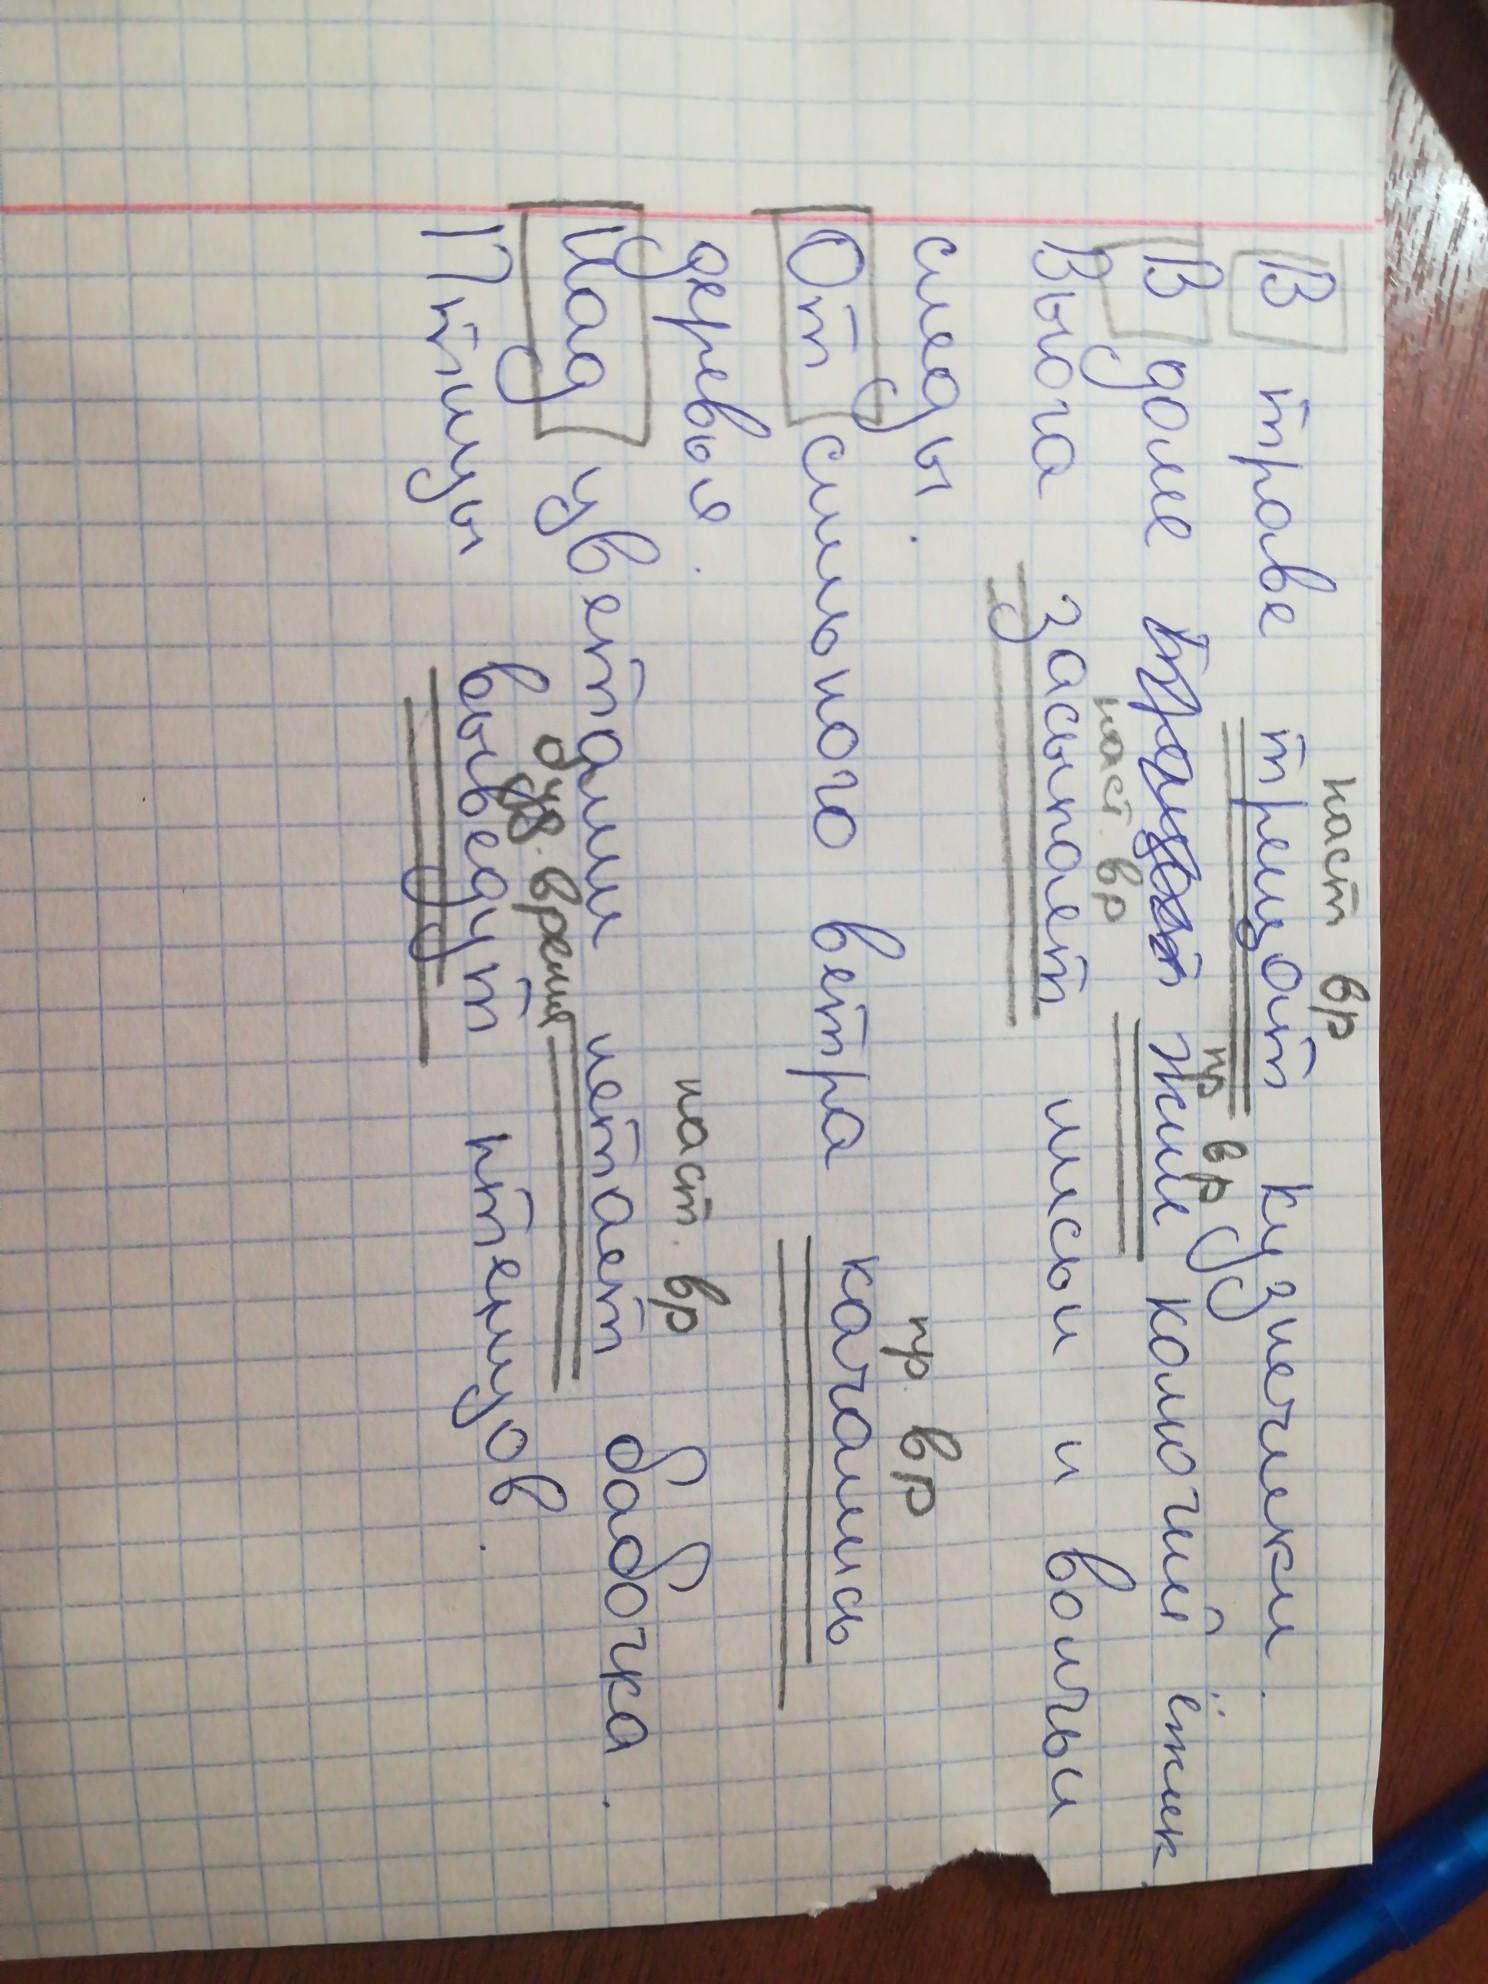 наст вр
В траве трещат кузнечики.
пр вр
В доме жил колючий ёжик.
наст. вр
Вьюга засыпает лисьи и волчьи
следы.
пр вр
От сильного ветра качались
деревья.
наст. вр
Над цветами летает бабочка.
буд. время
Птицы выведут птенцов.